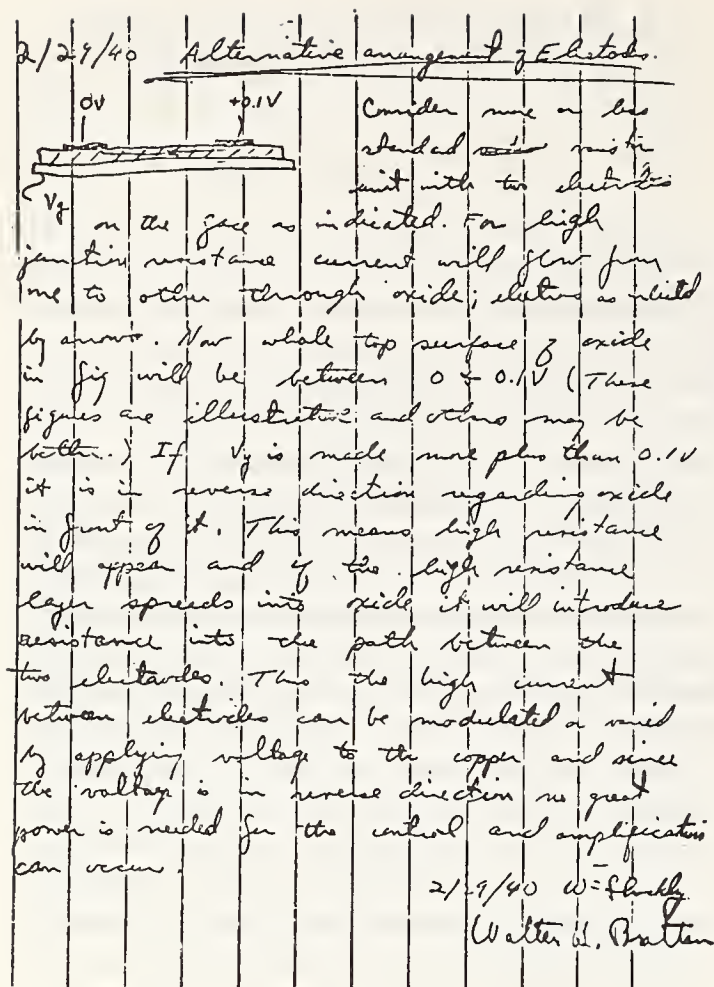 2/29/40 Alternative arrangement of Electrodes.
0V +0.1V Consider more or less
standard varistor
unit with two electrodes
Vg on the face as indicated. For high
junction resistance current will flow from
one to other through oxide; electrons as indicated
by arrows. Now whole top surface of oxide
in fig will be between 0 & 0.1V (These
figures are illustrative and others may be
better.) If Vg is made more plus than 0.1V
it is in reverse direction regarding oxide
in front of it. This means high resistance
will appear and if the high resistance
layer spreads into oxide it will introduce
resistance into the path between the
two electrodes. Thus the high current
between electrodes can be modulated or varied
by applying voltage to the copper and since
the voltage is in reverse direction no great
power is needed for the control and amplification
can occur.
2/29/40 W Shockley
Walter H. Brattain